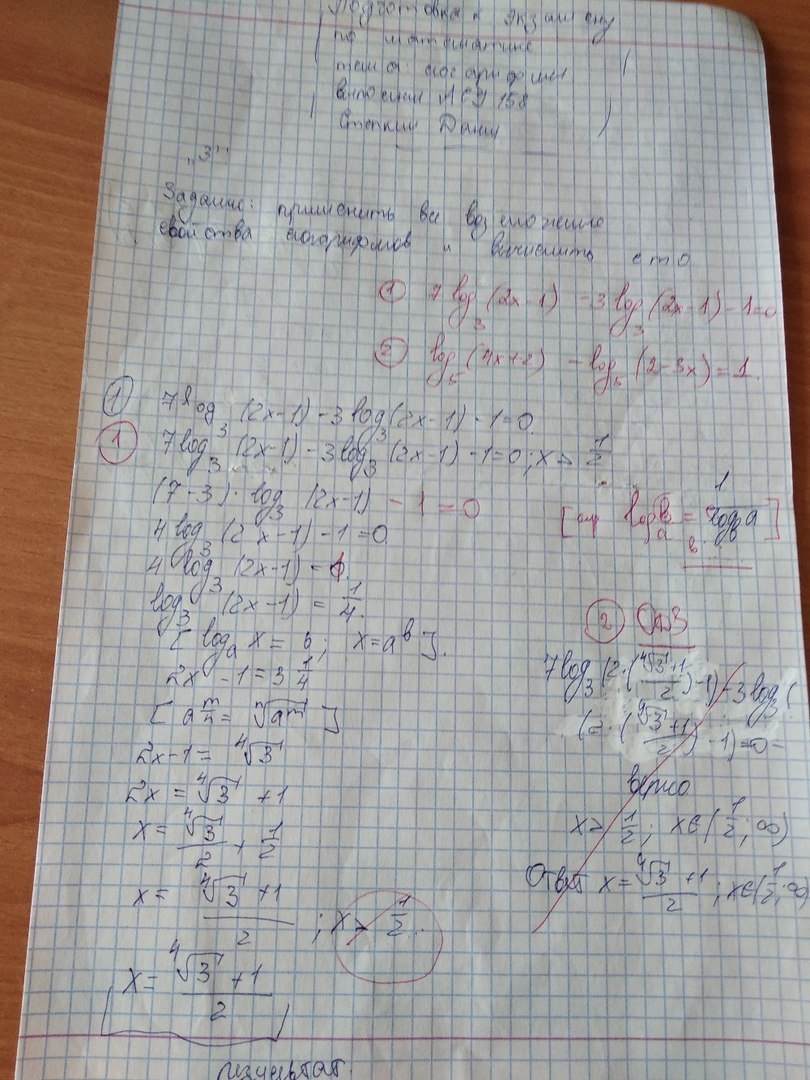 Подготовка к экзамену
по математике
тема: логарифмы
выполнил
Степкин Данил
"3"
Задание: применить все возможные
свойства логарифмов и вычислить
① 7 log₃ (2x-1) - 3 log₃ (2x-1) - 1 = 0
② log₅ (4x+2) - log₅ (2-3x) = 1.
① 7 log₃ (2x-1) - 3 log₃ (2x-1) - 1 = 0
① 7 log₃ (2x-1) - 3 log₃ (2x-1) - 1 = 0; x > 1/2
(7-3) · log₃ (2x-1) - 1 = 0
4 log₃ (2x-1) - 1 = 0
4 log₃ (2x-1) = 1.
log₃ (2x-1) = 1/4.
[logₐ x = b; x = aᵇ].
2x - 1 = 3 1/4
[a m/n = ⁿ√aᵐ]
2x-1 = ⁴√3
2x = ⁴√3 + 1
x = ⁴√3/2 + 1/2
x = (⁴√3 + 1)/2 ; x > 1/2.
x = (⁴√3 + 1)/2
результат.
② ОДЗ
7 log₃ (2·((⁴√3+1)/2)-1) - 3 log₃ (
(2·((⁴√3+1)/2)-1) = 0 =
верно
x > 1/2; x∈(1/2; ∞)
Ответ x = (⁴√3+1)/2 ; x∈(1/2; ∞)